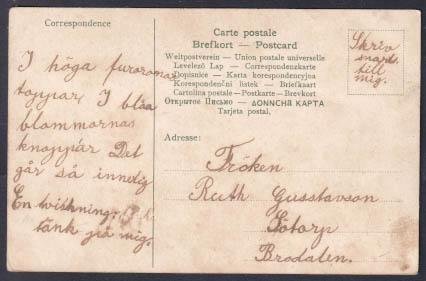 Correspondence
I höga furornas
toppar, I blåa
blommornas
knoppar Det
går så innerlig
En wiskning:
tänk på mig.
Carte postale
Brefkort — Postcard
Weltpostverein — Union postale universelle
Levelező Lap — Correspondenzkarte
Dopisnice — Karta korespondencyjna
Korespondenční lístek — Briefkaart
Cartolina postale — Postkarte — Brevkort
Открытое Письмо — ΔΟΝΝСНΔ ΚΑΡΤΑ
Tarjeta postal.
Skriv
snart
till
mig.
Adresse:
Fröken
Ruth Gusstavson
Götorp
Brodalen.